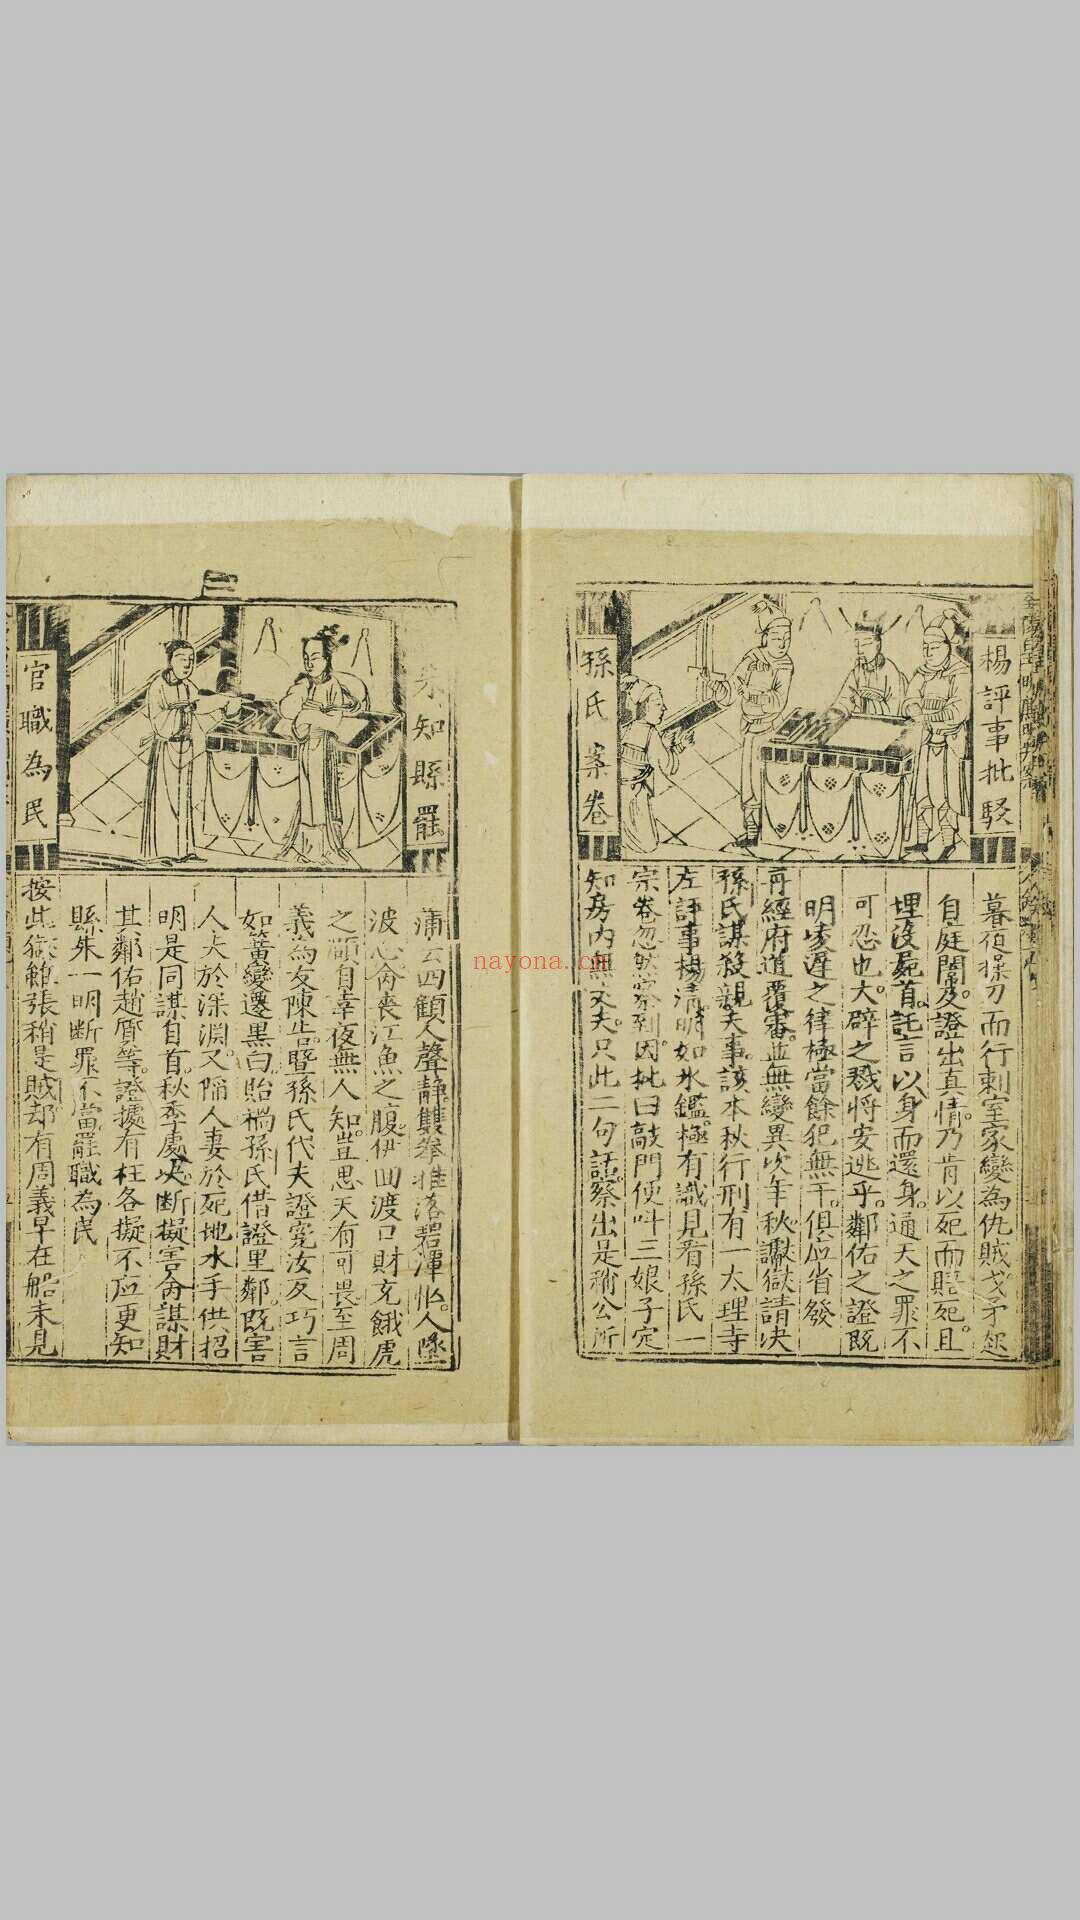 楊評事批駁
孫氏案卷
暮宿操刀而行刺室家變為仇賊戈矛起
自庭闈及證出真情乃肯以死而賠死且
埋沒屍首託言以身而還身通天之罪不
可忍也大辟之戮將安逃乎鄰佑之證既
明凌遲之律極當餘犯無干俱应省發
再經府道覆審並無變異次年秋讞獄請决
孫氏謀殺親夫事該本秋行刑有一太理寺
左評事楊清明如氷鑑極有識見看孫氏一
宗卷忽然察到因批曰敲門便叫三娘子定
知房内無丈夫只此二句話察出是稍公所
知縣罷
官職為民
蒲云四顧人聲静雙拳推落碧潭忙人墜
波心命喪江魚之腹伊回渡口財充餓虎
之顧自幸夜無人知豈思天有可畏至周
義為友陳告暨孫氏代夫證寃汝反巧言
如簧變遷黑白貽禍孫氏借證里鄰既害
人夫於深淵又陷人妻於死地水手供招
明是同謀自首秋季處决断擬害命謀財
其鄰佑趙質等證據有枉各擬不应更知
縣朱一明断罪不當罷職為民
按此獄張稍是賊却有周義早在船未見
nayona.cn